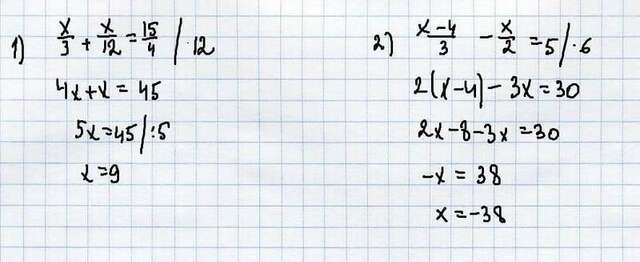 1) x/3 + x/12 = 15/4 / · 12
4x + x = 45
5x = 45 / : 5
x = 9
2) x-4/3 - x/2 = 5 / · 6
2(x-4) - 3x = 30
2x - 8 - 3x = 30
-x = 38
x = -38